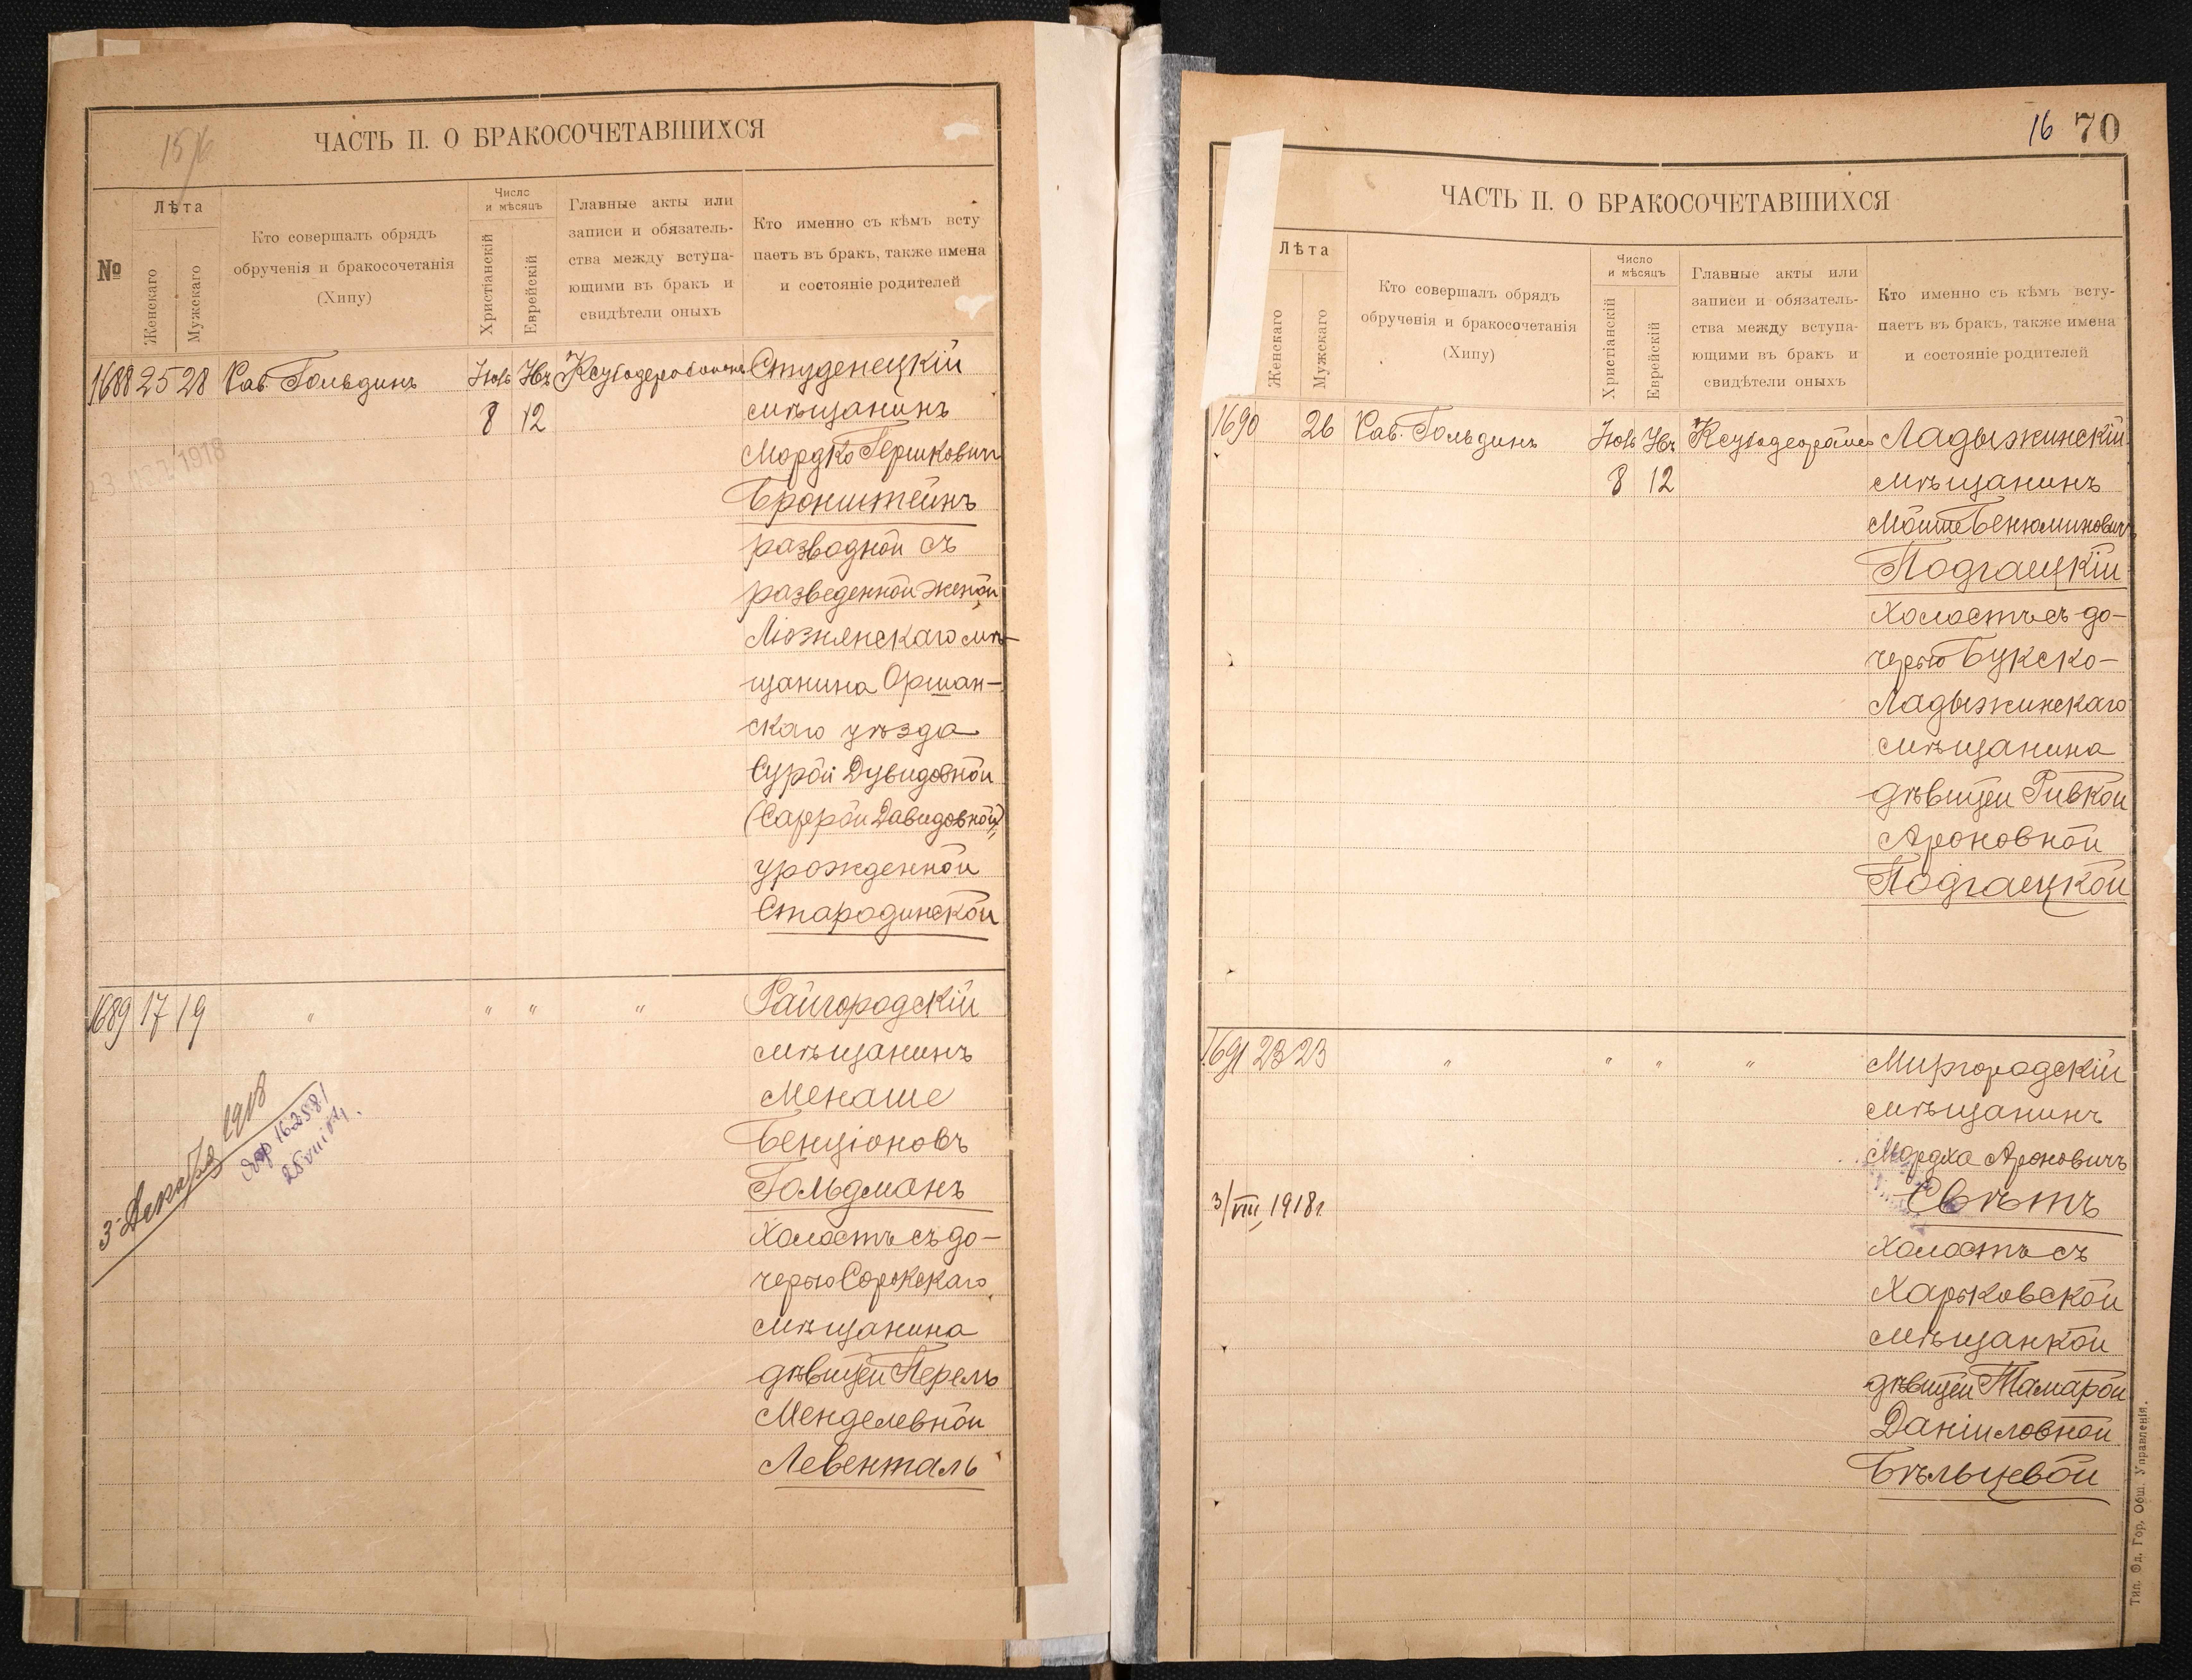 15/16
ЧАСТЬ II. О БРАКОСОЧЕТАВШИХСЯ
№
Лѣта
Женскаго
Мужскаго
Кто совершалъ обрядъ
обрученія и бракосочетанія
(Хипу)
Число
и мѣсяцъ
Христіанскій
Еврейскій
Главные акты или
записи и обязатель-
ства между вступа-
ющими въ бракъ и
свидѣтели оныхъ
Кто именно съ кѣмъ всту
паетъ въ бракъ, также имена
и состояніе родителей
1688 25 28 Рав. Гольдинъ
8 12
Студенецкій
мѣщанинъ
Мордко Гершковичъ
Бронштейнъ
разводной съ
разведенной женой
Ліознянскаго мѣ-
щанина Оршан-
скаго уѣзда
Сурой Дувидовной
(Саррой Давидовной),
урожденной
Стародинской
1918
1689 17 19 " " " "
Райгородскій
мѣщанинъ
Менаше
Бенціоновъ
Гольдманъ
холостъ съ до-
черью Сорокскаго
мѣщанина
дѣвицей Перель
Менделевной
Левенталь
3 Декабря 1918
16 70
ЧАСТЬ II. О БРАКОСОЧЕТАВШИХСЯ
Лѣта
Женскаго
Мужскаго
Кто совершалъ обрядъ
обрученія и бракосочетанія
(Хипу)
Число
и мѣсяцъ
Христіанскій
Еврейскій
Главные акты или
записи и обязатель-
ства между вступа-
ющими въ бракъ и
свидѣтели оныхъ
Кто именно съ кѣмъ всту-
паетъ въ бракъ, также имена
и состояніе родителей
1690 26 Рав. Гольдинъ
8 12
Ладыжинскій
мѣщанинъ
Мойше Бенюминовичъ
Подгаецкій
холостъ съ до-
черью Букско-
Ладыжинскаго
мѣщанина
дѣвицей Ривкой
Ароновной
Подгаецкой
1691 23 23 " " " "
Миргородскій
мѣщанинъ
Мордха Ароновичъ
Свѣтъ
холостъ съ
Харьковской
мѣщанкой
дѣвицей Тамарой
Даніиловной
Бѣльцевой
3/VIII 1918 г.
Тип. Од. Гор. Общ. Управленія.